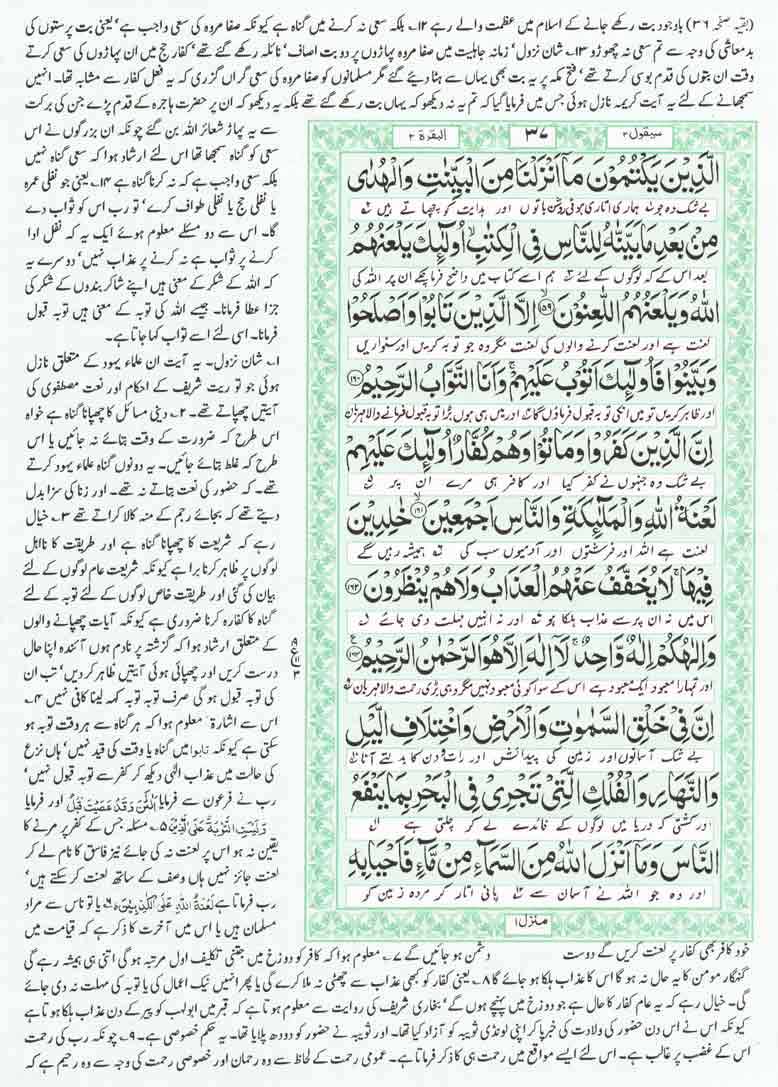 (بقیہ صفحہ ۳۶) باوجود بت رکھے جانے کے اسلام میں عظمت والے رہے ۱۲۔ بلکہ سعی نہ کرنے میں گناہ ہے کیونکہ صفا مروہ کی سعی واجب ہے، یعنی بت پرستوں کی
بدمعاشی کی وجہ سے تم سعی نہ چھوڑو ۱۳۔ شان نزول، زمانہ جاہلیت میں صفا مروہ پہاڑوں پر دو بت اصاف، نائلہ رکھے گئے تھے، کفار حج میں ان پہاڑوں کی سعی کرتے
وقت ان بتوں کی قدم بوسی کرتے تھے، فتح مکہ پر یہ بت بھی یہاں سے ہٹا دیئے گئے مگر مسلمانوں کو صفا مروہ کی سعی گراں گزری کہ یہ فعل کفار سے مشابہ تھا۔ انہیں
سمجھانے کے لئے یہ آیت کریمہ نازل ہوئی جس میں فرمایا گیا کہ تم یہ نہ دیکھو کہ یہاں بت رکھے گئے تھے بلکہ یہ دیکھو کہ ان پر حضرت ہاجرہ کے قدم پڑے جن کی برکت
سے یہ پہاڑ شعائر اللہ بن گئے چونکہ ان بزرگوں نے اس
سعی کو گناہ سمجھا تھا اس لئے ارشاد ہوا کہ سعی گناہ نہیں
بلکہ سعی واجب ہے کہ نہ کرنا گناہ ہے ۱۴۔ یعنی جو نفلی عمرہ
یا نفلی حج یا نفلی طواف کرے، تو رب اس کو ثواب دے
گا۔ اس سے دو مسئلے معلوم ہوئے ایک یہ کہ نفل ادا
کرنے پر ثواب ہے نہ کرنے پر عذاب نہیں، دوسرے یہ
کہ اللہ کے شکر کے معنی ہیں اپنے شاکر بندوں کے شکر کی
جزا عطا فرمانا۔ جیسے اللہ کی توبہ کے معنی ہیں توبہ قبول
فرمانا۔ اسی لئے اسے تواب کہا جاتا ہے۔
۱۔ شان نزول۔ یہ آیت ان علماء یہود کے متعلق نازل
ہوئی جو توریت شریف کے احکام اور نعت مصطفوی کی
آیتیں چھپاتے تھے۔ ۲۔ دینی مسائل کا چھپانا گناہ ہے خواہ
اس طرح کہ ضرورت کے وقت بتائے نہ جائیں یا اس
طرح کہ غلط بتائے جائیں۔ یہ دونوں گناہ علماء یہود کرتے
تھے۔ کہ حضور کی نعت بتاتے نہ تھے۔ اور زنا کی سزا بدل
دیتے تھے کہ بجائے رجم کے منہ کالا کراتے تھے ۳۔ خیال
رہے کہ شریعت کا چھپانا گناہ ہے اور طریقت کا نااہل
لوگوں پر ظاہر کرنا برا ہے کیونکہ شریعت عام لوگوں کے لئے
بیان کی گئی اور طریقت خاص لوگوں کے لئے توبہ کے لئے
گناہ کا کفارہ کرنا ضروری ہے کیونکہ آیات چھپانے والوں
کے متعلق ارشاد ہوا کہ گزشتہ پر نادم ہوں آئندہ اپنا حال
درست کریں اور چھپائی ہوئی آیتیں ظاہر کر دیں، تب ان
کی توبہ قبول ہو گی صرف توبہ توبہ کہہ لینا کافی نہیں ۴۔
اس سے اشارۃً معلوم ہوا کہ ہر گناہ سے ہر وقت توبہ ہو
سکتی ہے کیونکہ تابوا میں گناہ یا وقت کی قید نہیں، ہاں نزع
کی حالت میں عذاب الٰہی دیکھ کر کفر سے توبہ قبول نہیں،
رب نے فرعون سے فرمایا آلْئٰنَ وَقَدْ عَصَیْتَ قَبْلُ اور فرمایا
وَلَیْسَتِ التَّوْبَۃُ عَلَی الَّذِیْنَ ۵۔ مسئلہ جس کے کفر پر مرنے کا
یقین نہ ہو اس پر لعنت نہ کی جائے نیز فاسق کا نام لے کر
لعنت جائز نہیں ہاں وصف کے ساتھ لعنت کر سکتے ہیں،
رب فرماتا ہے لَعْنَۃُ اللہِ عَلَی الْکٰذِبِیْنَ ۶۔ یا تو ناس سے مراد
مسلمان ہیں یا اس میں آخرت کا ذکر ہے کہ قیامت میں
سیقول ۲
۳۷
البقرۃ ۲
الَّذِیْنَ یَكْتُمُوْنَ مَاۤ اَنْزَلْنَا مِنَ الْبَیِّنٰتِ وَالْهُدٰى
بے شک وہ جو ہماری اتاری ہوئی روشن باتوں اور ہدایت کو چھپاتے ہیں
مِنْۢ بَعْدِ مَا بَیَّنّٰهُ لِلنَّاسِ فِی الْكِتٰبِ ۙ اُولٰٓىٕكَ یَلْعَنُهُمُ
بعد اس کے کہ لوگوں کے لئے ہم اسے کتاب میں واضح فرما چکے ان پر اللہ کی
اللّٰهُ وَیَلْعَنُهُمُ اللّٰعِنُوْنَ ۱۵۹ اِلَّا الَّذِیْنَ تَابُوْا وَاَصْلَحُوْا
لعنت ہے اور لعنت کرنے والوں کی لعنت مگر وہ جو توبہ کریں اور سنواریں
وَبَیَّنُوْا فَاُولٰٓىٕكَ اَتُوْبُ عَلَیْهِمْ ۚ وَاَنَا التَّوَّابُ الرَّحِیْمُ ۱۶۰
اور ظاہر کریں تو میں انکی توبہ قبول فرماؤں گا اور میں ہی ہوں بڑا توبہ قبول فرمانے والا مہربان
اِنَّ الَّذِیْنَ كَفَرُوْا وَمَاتُوْا وَهُمْ كُفَّارٌ اُولٰٓىٕكَ عَلَیْهِمْ
بے شک وہ جنہوں نے کفر کیا اور کافر ہی مرے ان پر
لَعْنَةُ اللّٰهِ وَالْمَلٰٓىٕكَةِ وَالنَّاسِ اَجْمَعِیْنَ ۱۶۱ خٰلِدِیْنَ
لعنت ہے اللہ اور فرشتوں اور آدمیوں سب کی ہمیشہ رہیں گے
فِیْهَا ۚ لَا یُخَفَّفُ عَنْهُمُ الْعَذَابُ وَلَا هُمْ یُنْظَرُوْنَ ۱۶۲
اس میں نہ ان پر سے عذاب ہلکا ہو اور نہ انہیں مہلت دی جائے
وَاِلٰهُكُمْ اِلٰهٌ وَّاحِدٌ ۚ لَاۤ اِلٰهَ اِلَّا هُوَ الرَّحْمٰنُ الرَّحِیْمُ ۱۶۳
اور تمہارا معبود ایک معبود ہے اس کے سوا کوئی معبود نہیں مگر وہی بڑی رحمت والا مہربان
اِنَّ فِیْ خَلْقِ السَّمٰوٰتِ وَالْاَرْضِ وَاخْتِلَافِ الَّیْلِ
بے شک آسمانوں اور زمین کی پیدائش اور رات و دن کا بدلتے آنا
وَالنَّهَارِ وَالْفُلْكِ الَّتِیْ تَجْرِیْ فِی الْبَحْرِ بِمَا یَنْفَعُ
اور کشتی کہ دریا میں لوگوں کے فائدے لے کر چلتی ہے
النَّاسَ وَمَاۤ اَنْزَلَ اللّٰهُ مِنَ السَّمَآءِ مِنْ مَّآءٍ فَاَحْیَا بِهِ
اور وہ جو اللہ نے آسمان سے پانی اتار کر مردہ زمین کو
منزل ۱
خود کافر بھی کفار پر لعنت کریں گے دوست دشمن ہو جائیں گے ۷۔ معلوم ہوا کہ کافر کو دوزخ میں جتنی تکلیف اول مرتبہ ہو گی اتنی ہی ہمیشہ رہے گی
گنہگار مومن کا یہ حال نہ ہو گا اس کا عذاب ہلکا ہو جائے گا ۸۔ یعنی کفار کو کبھی عذاب سے چھٹی نہ ملا کرے گی یا پھر انہیں نیک اعمال کی یا توبہ کی مہلت نہ دی جائے
گی۔ خیال رہے کہ یہ عام کفار کا حال ہے جو دوزخ میں پہنچے ہوں گے، بخاری شریف کی روایت سے معلوم ہوتا ہے کہ قبر میں ابولہب کو پیر کے دن عذاب ہلکا ہوتا ہے
کیونکہ اس نے اس دن حضور کی ولادت کی خبر پا کر اپنی لونڈی ثویبہ کو آزاد کیا تھا۔ اور ثویبہ نے حضور کو دودھ پلایا تھا۔ یہ حکم خصوصی ہے۔ ۹۔ چونکہ رب کی رحمت
اس کے غضب پر غالب ہے۔ اس لئے ایسے مواقع میں رحمت ہی کا ذکر فرماتا ہے۔ عمومی رحمت کے لحاظ سے وہ رحمان اور خصوصی رحمت کی وجہ سے وہ رحیم ہے کہ